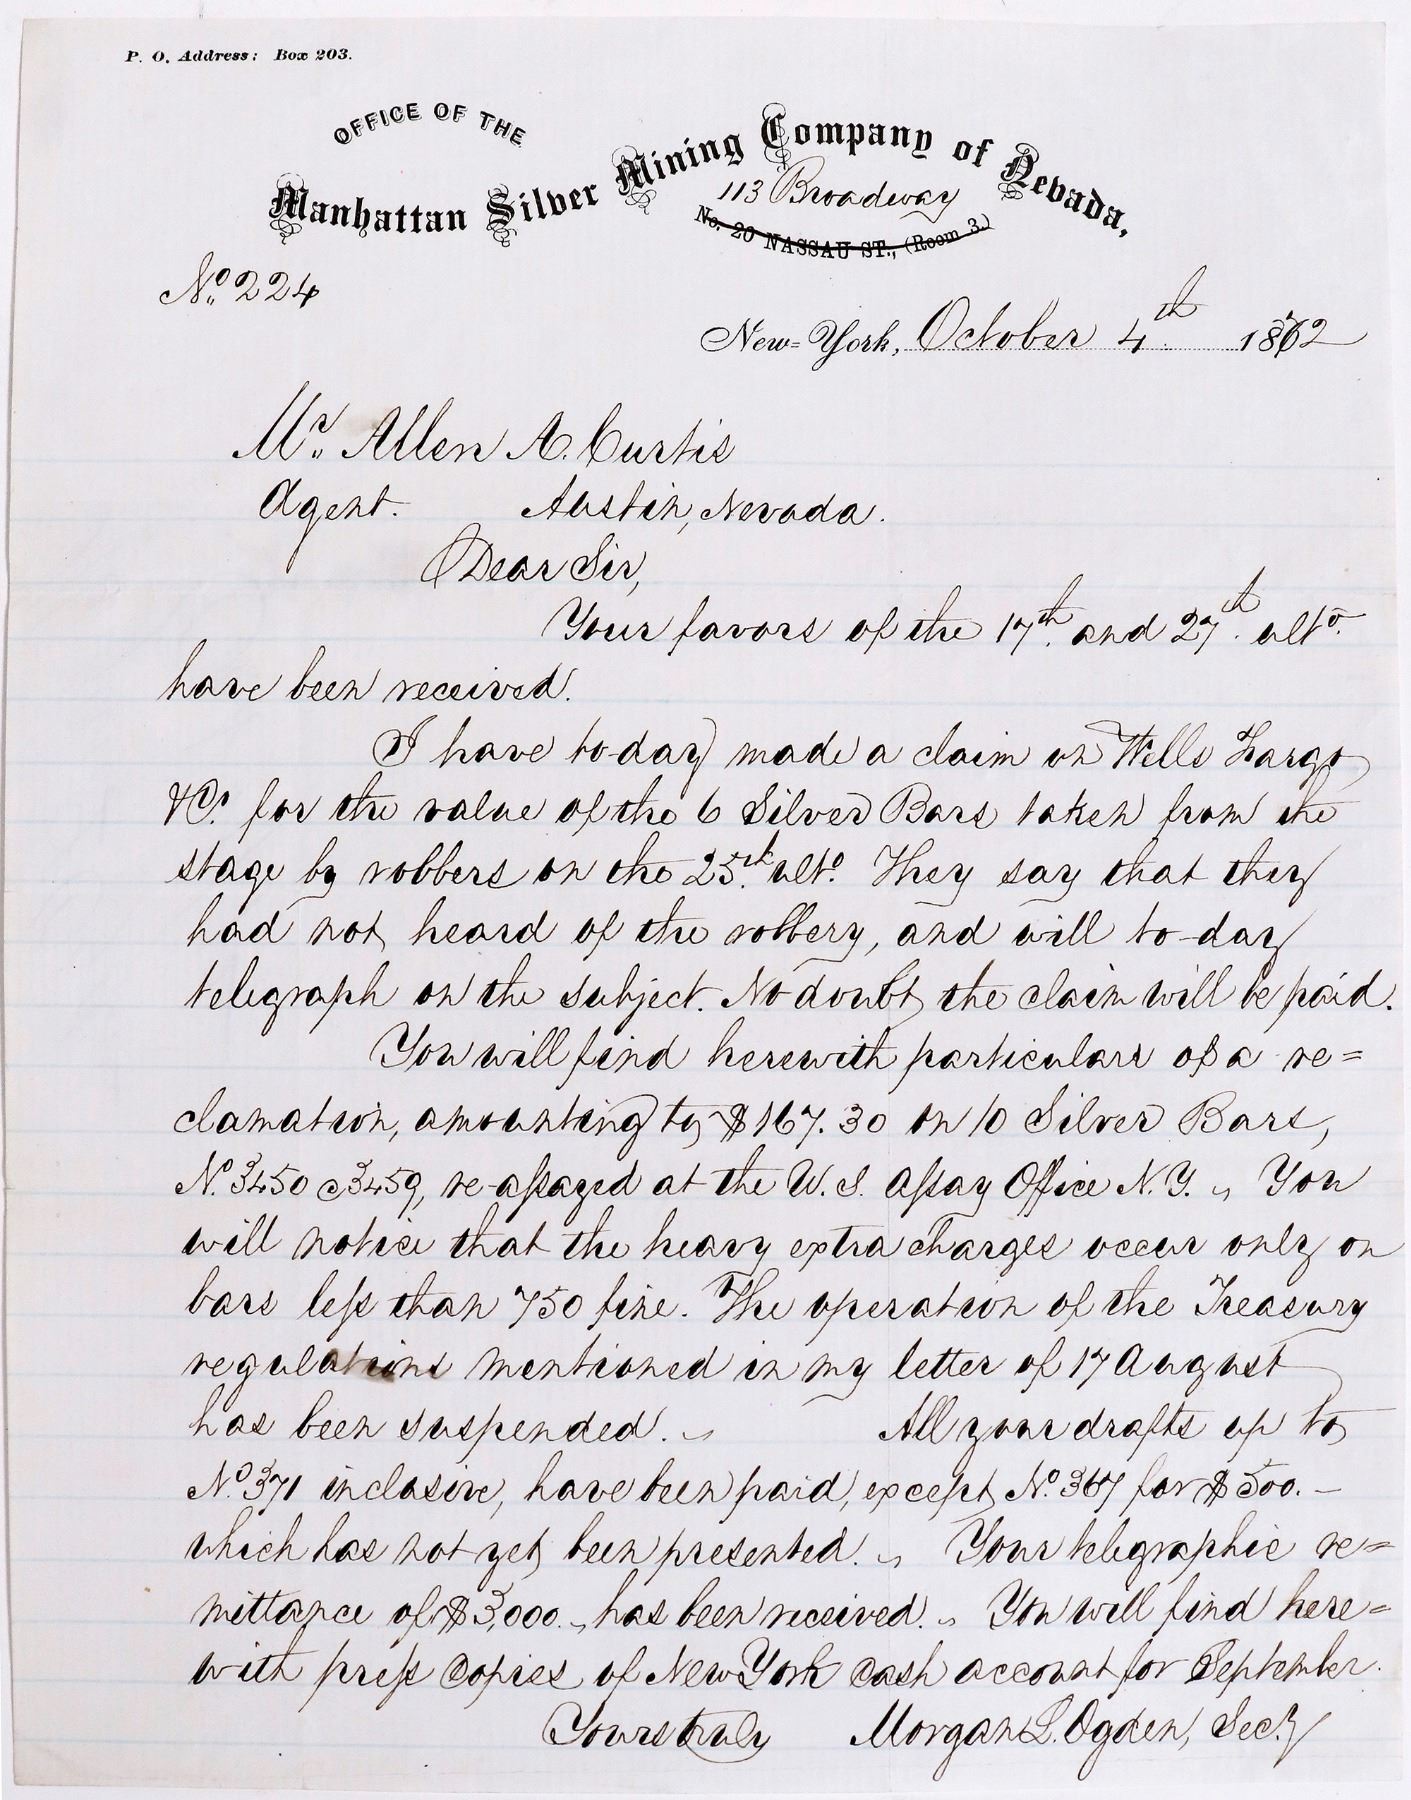 P. O. Address: Box 203.
OFFICE OF THE
Manhattan Silver Mining Company of Nevada,
113 Broadway
No. 20 NASSAU ST., (Room 3.)
No. 224
New-York, October 4th 1872
Mr. Allen A. Curtis
Agent. Austin, Nevada.
Dear Sir,
Your favors of the 17th. and 27th. ulto.
have been received.
I have to-day made a claim on Wells Fargo
& Co. for the value of the 6 Silver Bars taken from the
stage by robbers on the 25th. ulto. They say that they
had not heard of the robbery, and will to-day
telegraph on the subject. No doubt the claim will be paid.
You will find herewith particulars of a re=
clamation, amounting to $167.30 on 10 Silver Bars,
No. 3450 @ 3459, re-assayed at the U. S. Assay Office N. Y. „ You
will notice that the heavy extra charges occur only on
bars less than 750 fine. The operation of the Treasury
regulations mentioned in my letter of 17 August
has been suspended. „ All your drafts up to
No. 371 inclusive, have been paid, except No. 367 for $500.-
which has not yet been presented. „ Your telegraphic re=
mittance of $3,000. „ has been received. „ You will find here=
with press copies of New York cash account for September.
Yours truly Morgan L. Ogden, Secy.